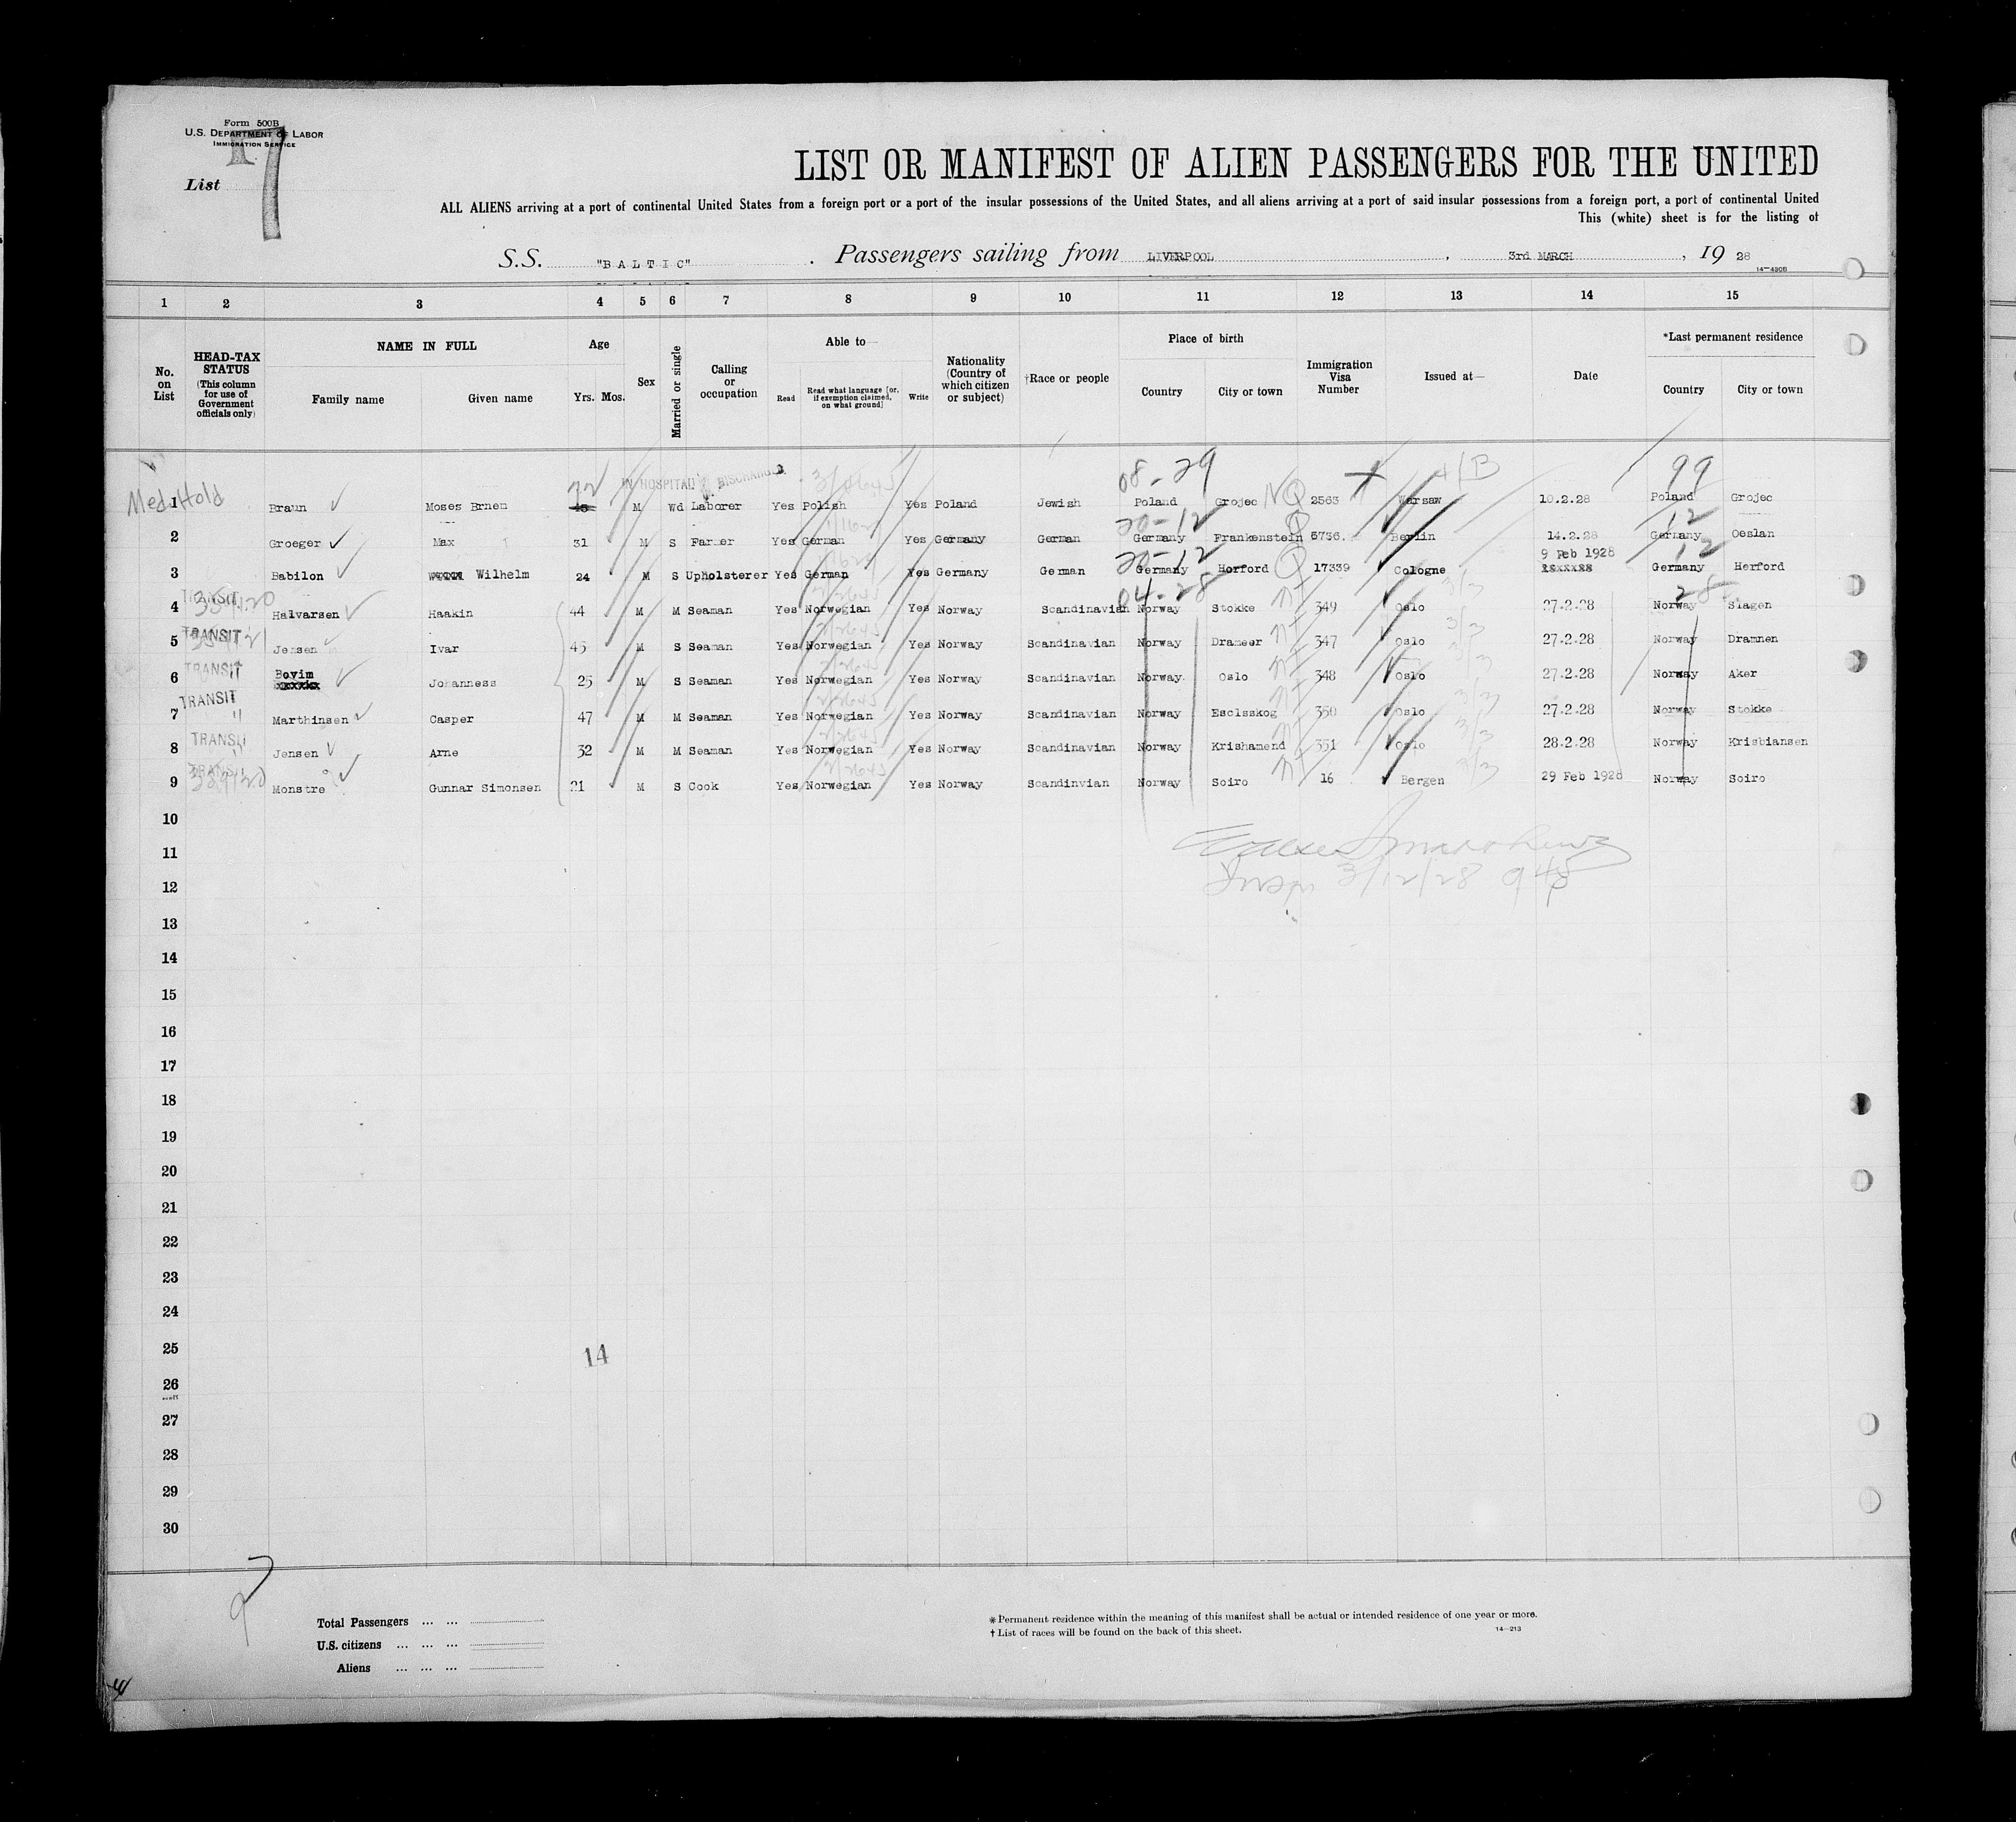 Form 500B
U.S. DEPARTMENT OF LABOR
IMMIGRATION SERVICE
List 17
LIST OR MANIFEST OF ALIEN PASSENGERS FOR THE UNITED
ALL ALIENS arriving at a port of continental United States from a foreign port or a port of the insular possessions of the United States, and all aliens arriving at a port of said insular possessions from a foreign port, a port of continental United
This (white) sheet is for the listing of
S.S. "BALTIC" . Passengers sailing from LIVERPOOL , 3rd MARCH , 19 28
14—430B
1 2 3 4 5 6 7 8 9 10 11 12 13 14 15
No. on List
HEAD-TAX STATUS (This column for use of Government officials only)
NAME IN FULL
Family name Given name
Age
Yrs. Mos.
Sex
Married or single
Calling or occupation
Able to—
Read Read what language [or, if exemption claimed, on what ground] Write
Nationality (Country of which citizen or subject)
†Race or people
Place of birth
Country City or town
Immigration Visa Number
Issued at—
Date
*Last permanent residence
Country City or town
IN HOSPITAL DISCHARGED
08-29 99
Med. Hold
1 Braun Moses Brnem M Wd Laborer Yes Polish Yes Poland Jewish Poland Grojec NQ 2563 Warsaw 10.2.28 Poland Grojec
20-12 12
2 Groeger Max 31 M S Farmer Yes German Yes Germany German Germany Frankenstein Q 6736. Berlin 14.2.28 Germany Oeslan
20-12 9 Feb 1928 12
3 Babilon Wilhelm 24 M S Upholsterer Yes German Yes Germany German Germany Horford Q 17339 Cologne Germany Herford
04-28 28
4 TRANSIT Halvarsen Haakin 44 M M Seaman Yes Norwegian Yes Norway Scandinavian Norway Stokke 349 Oslo 27.2.28 Norway Slagen
5 TRANSIT Jensen Ivar 45 M S Seaman Yes Norwegian Yes Norway Scandinavian Norway Drameer 347 Oslo 27.2.28 Norway Dramnen
6 TRANSIT Bovim Johanness 25 M S Seaman Yes Norwegian Yes Norway Scandinavian Norway Oslo 348 Oslo 27.2.28 Norway Aker
7 TRANSIT Marthinsen Casper 47 M M Seaman Yes Norwegian Yes Norway Scandinavian Norway Esclsskog 350 Oslo 27.2.28 Norway Stokke
8 TRANSIT Jensen Arne 32 M M Seaman Yes Norwegian Yes Norway Scandinavian Norway Krishamend 351 Oslo 28.2.28 Norway Krisbiansen
9 TRANSIT Monstre Gunnar Simonsen 21 M S Cook Yes Norwegian Yes Norway Scandinvian Norway Soiro 16 Bergen 29 Feb 1928 Norway Soiro
10
11
12
Insp 3/12/28
13
14
15
16
17
18
19
20
21
22
23
24
25
14
26
27
28
29
30
Total Passengers ... ...
U.S. citizens ... ... ...
Aliens ... ... ...
* Permanent residence within the meaning of this manifest shall be actual or intended residence of one year or more.
† List of races will be found on the back of this sheet.
14—213